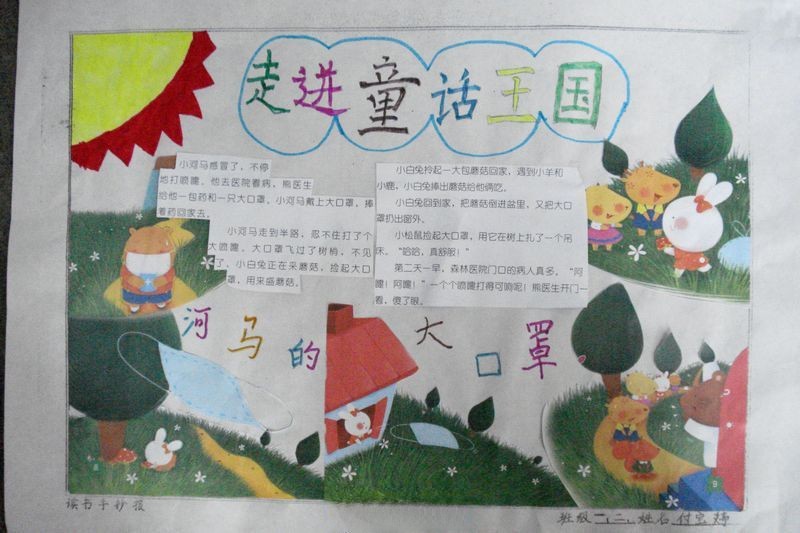 走进童话王国
小河马感冒了，不停
地打喷嚏。他去医院看病，熊医生
给他一包药和一只大口罩，小河马戴上大口罩，捧
着药回家去。
小河马走到半路，忍不住打了个
大喷嚏。大口罩飞过了树梢，不见
了。小白兔正在采蘑菇，捡起大口
罩，用来盛蘑菇。
小白兔拎起一大包蘑菇回家，遇到小羊和
小鹿，小白兔捧出蘑菇给他俩吃。
小白兔回到家，把蘑菇倒进盆里，又把大口
罩扔出窗外。
小松鼠捡起大口罩，用它在树上扎了一个吊
床。“哈哈，真舒服！”
第二天一早，森林医院门口的病人真多，“阿
嚏！阿嚏！”一个个喷嚏打得可响呢！熊医生开门一
看，傻了眼。
河马的大口罩
9
读书手抄报
班级 一、二、姓名 付宝